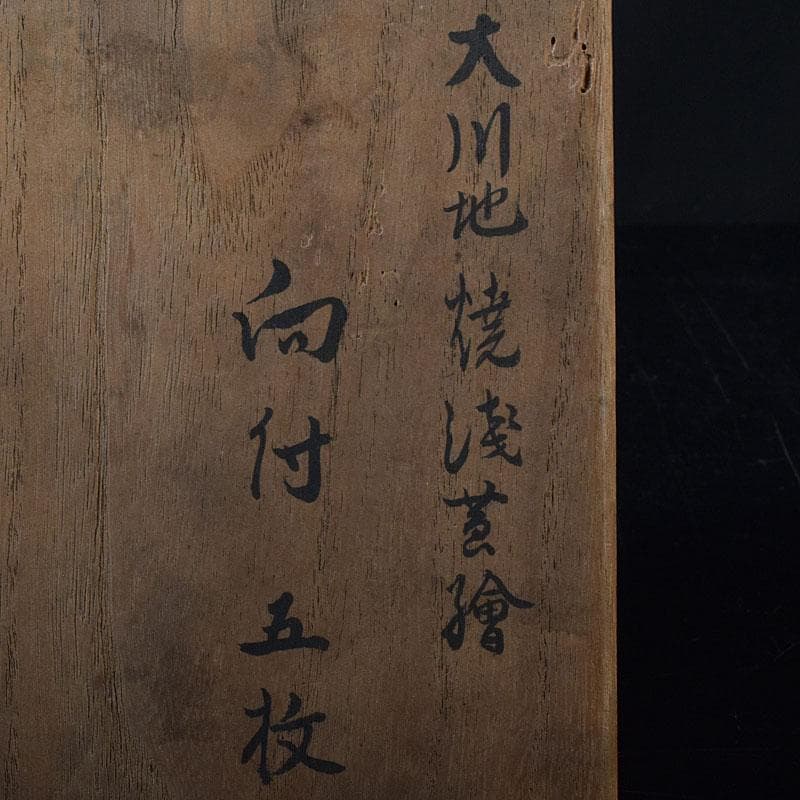 大川地燒淺黄繪
向付 五枚